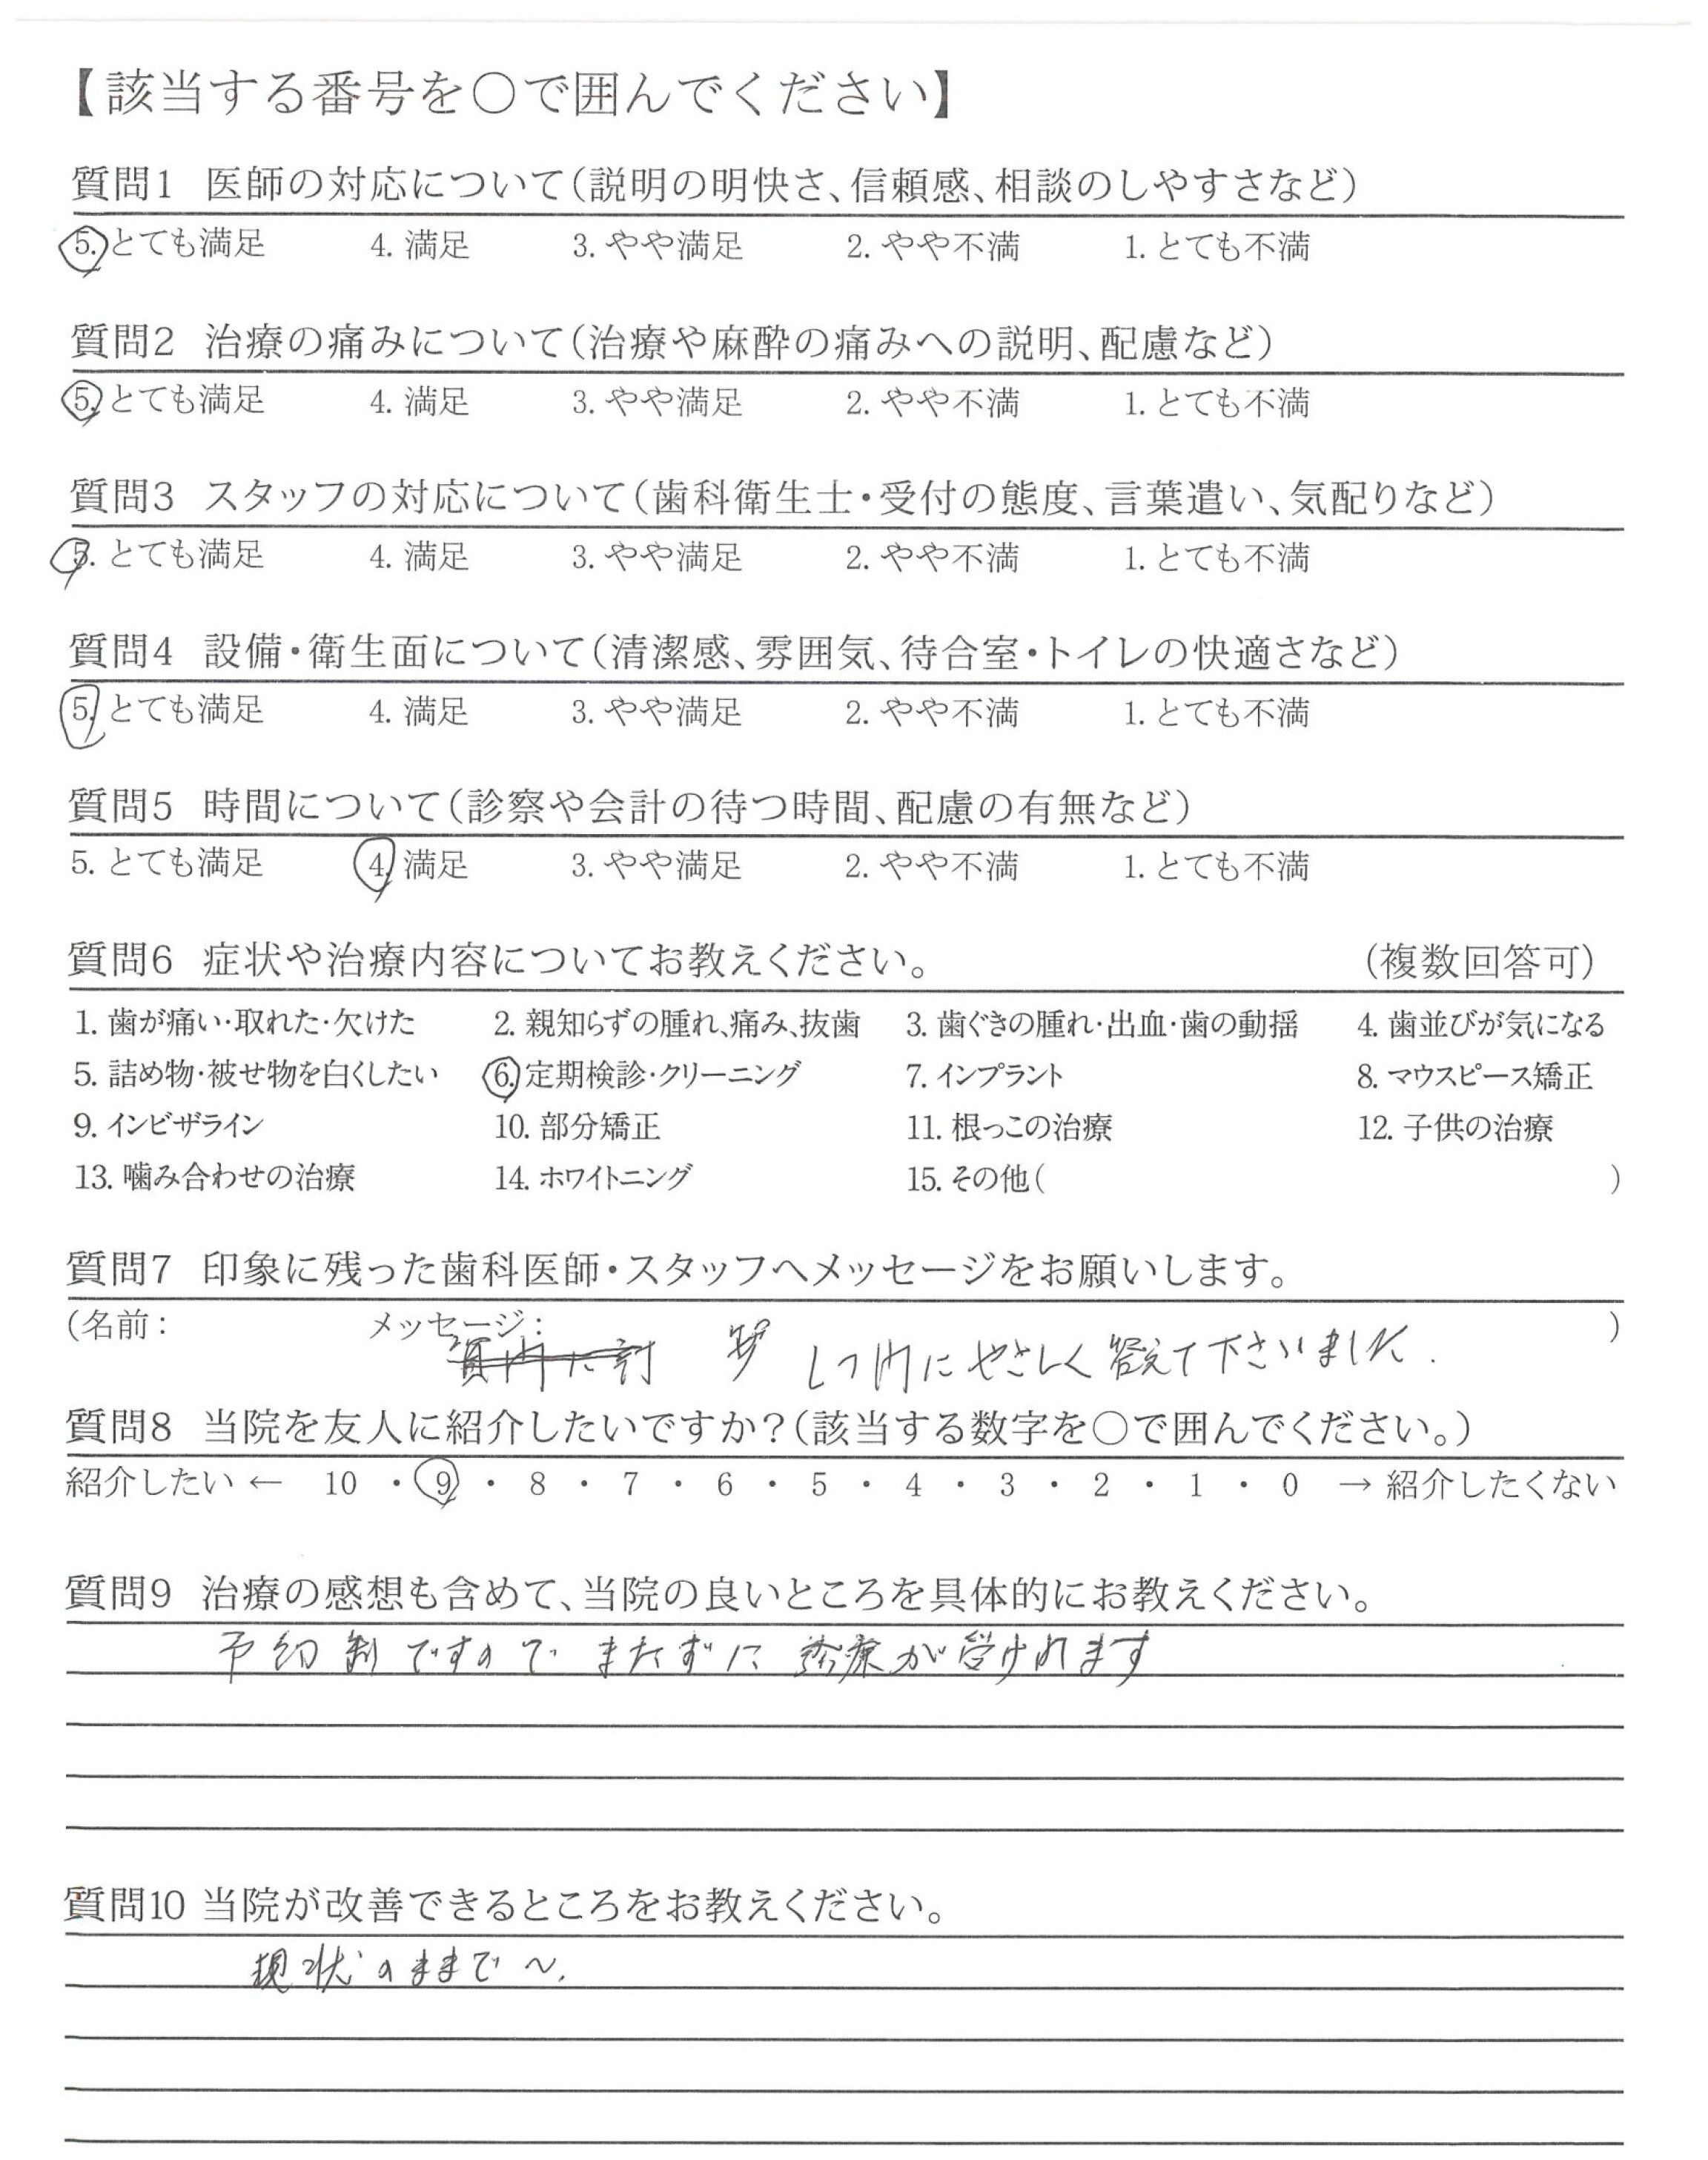 【該当する番号を○で囲んでください】
質問1 医師の対応について(説明の明快さ、信頼感、相談のしやすさなど)
5. とても満足 4. 満足 3. やや満足 2. やや不満 1. とても不満
質問2 治療の痛みについて(治療や麻酔の痛みへの説明、配慮など)
5. とても満足 4. 満足 3. やや満足 2. やや不満 1. とても不満
質問3 スタッフの対応について(歯科衛生士・受付の態度、言葉遣い、気配りなど)
5. とても満足 4. 満足 3. やや満足 2. やや不満 1. とても不満
質問4 設備・衛生面について(清潔感、雰囲気、待合室・トイレの快適さなど)
5. とても満足 4. 満足 3. やや満足 2. やや不満 1. とても不満
質問5 時間について(診察や会計の待つ時間、配慮の有無など)
5. とても満足 4. 満足 3. やや満足 2. やや不満 1. とても不満
質問6 症状や治療内容についてお教えください。 (複数回答可)
1. 歯が痛い・取れた・欠けた 2. 親知らずの腫れ、痛み、抜歯 3. 歯ぐきの腫れ・出血・歯の動揺 4. 歯並びが気になる
5. 詰め物・被せ物を白くしたい 6. 定期検診・クリーニング 7. インプラント 8. マウスピース矯正
9. インビザライン 10. 部分矯正 11. 根っこの治療 12. 子供の治療
13. 噛み合わせの治療 14. ホワイトニング 15. その他( )
質問7 印象に残った歯科医師・スタッフへメッセージをお願いします。
(名前: メッセージ: )
しつ問にやさしく答えて下さいました.
質問8 当院を友人に紹介したいですか?(該当する数字を○で囲んでください。)
紹介したい ← 10 ・ 9 ・ 8 ・ 7 ・ 6 ・ 5 ・ 4 ・ 3 ・ 2 ・ 1 ・ 0 → 紹介したくない
質問9 治療の感想も含めて、当院の良いところを具体的にお教えください。
予約制ですので またずに 診療が受けれます
質問10 当院が改善できるところをお教えください。
現状のままで〜.